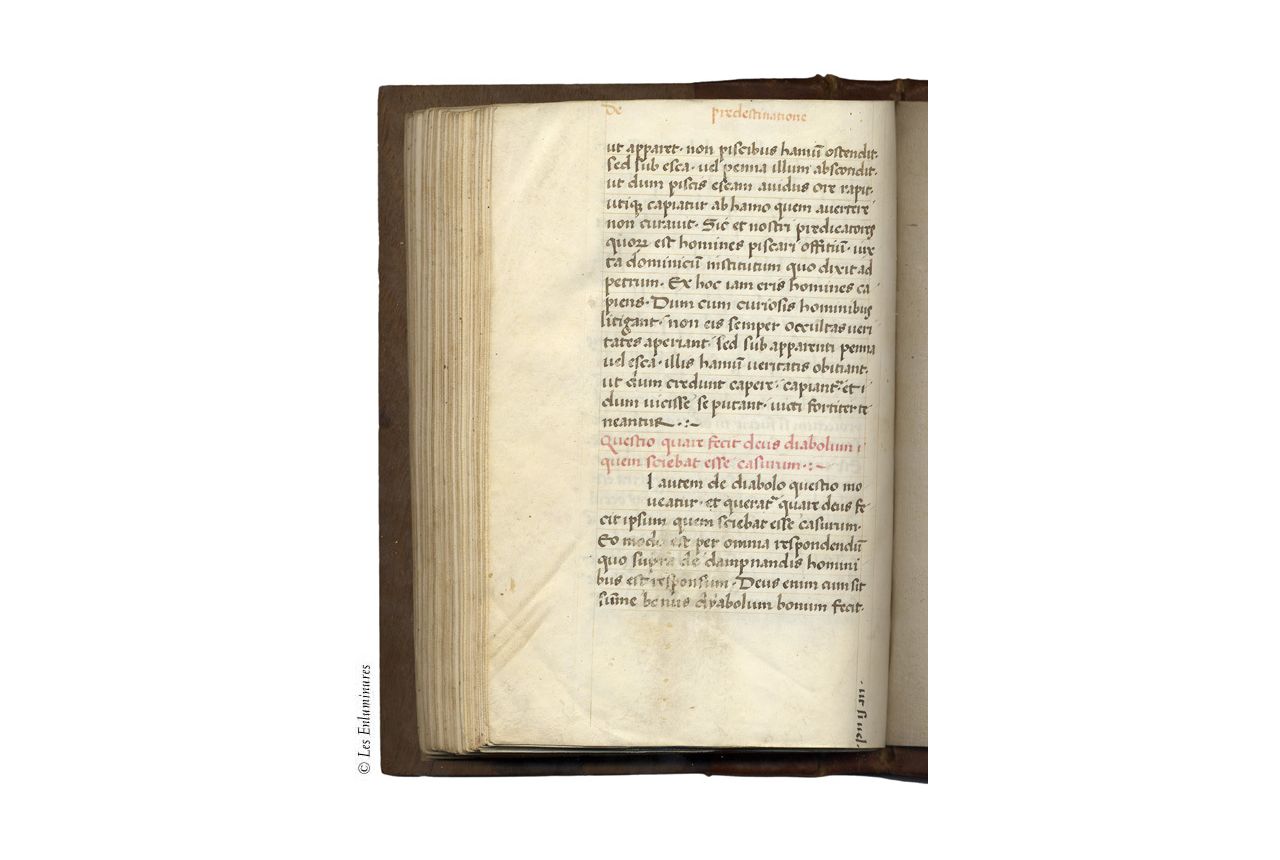 De predestinatione
ut apparet· non piscibus hamū ostendit·
sed sub esca· uel penna illum abscondit·
ut dum piscis escam auidus ore rapit·
utiqꝫ capiatur ab hamo quem auertere
non curauit· Sic et nostri predicatores
quoꝝ est homines piscari offitiū· iux
ta dominicū institutum quo dixit ad
petrum· Ex hoc iam eris homines ca
piens· Dum cum curiosis hominibus
litigant· non eis semper occultas ueri
tates aperiant· sed sub apparenti penna
uel esca· illis hamū ueritatis obitiant·
ut dum credunt capere· capiant᷑ et i
dum uicisse se putant· uicti fortiter te
neantur·:~
Questio quare fecit deus diabolum i
quem sciebat esse casurum·:~
I autem de diabolo questio mo
ueatur· et querat᷑ quare deus fe
cit ipsum quem sciebat esse casurum·
Eo modo est per omnia respondendū
quo supra de dampnandis homini
bus est responsum· Deus enim cum sit
sūme bonus dyabolum bonum fecit·
·ut si uel·
© Les Enluminures